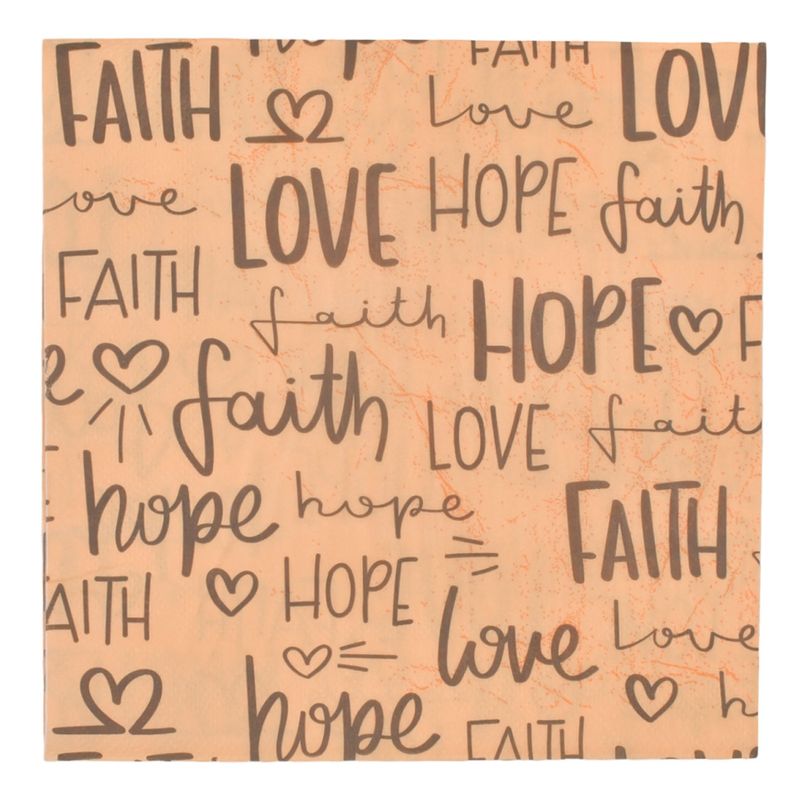 hope FAITH
FAITH LOVE
Love
ove LOVE HOPE faith
FAITH
faith HOPE F
e faith LOVE fait
hope hope
FAITH
AITH HOPE
love Love
h
hope FAITH